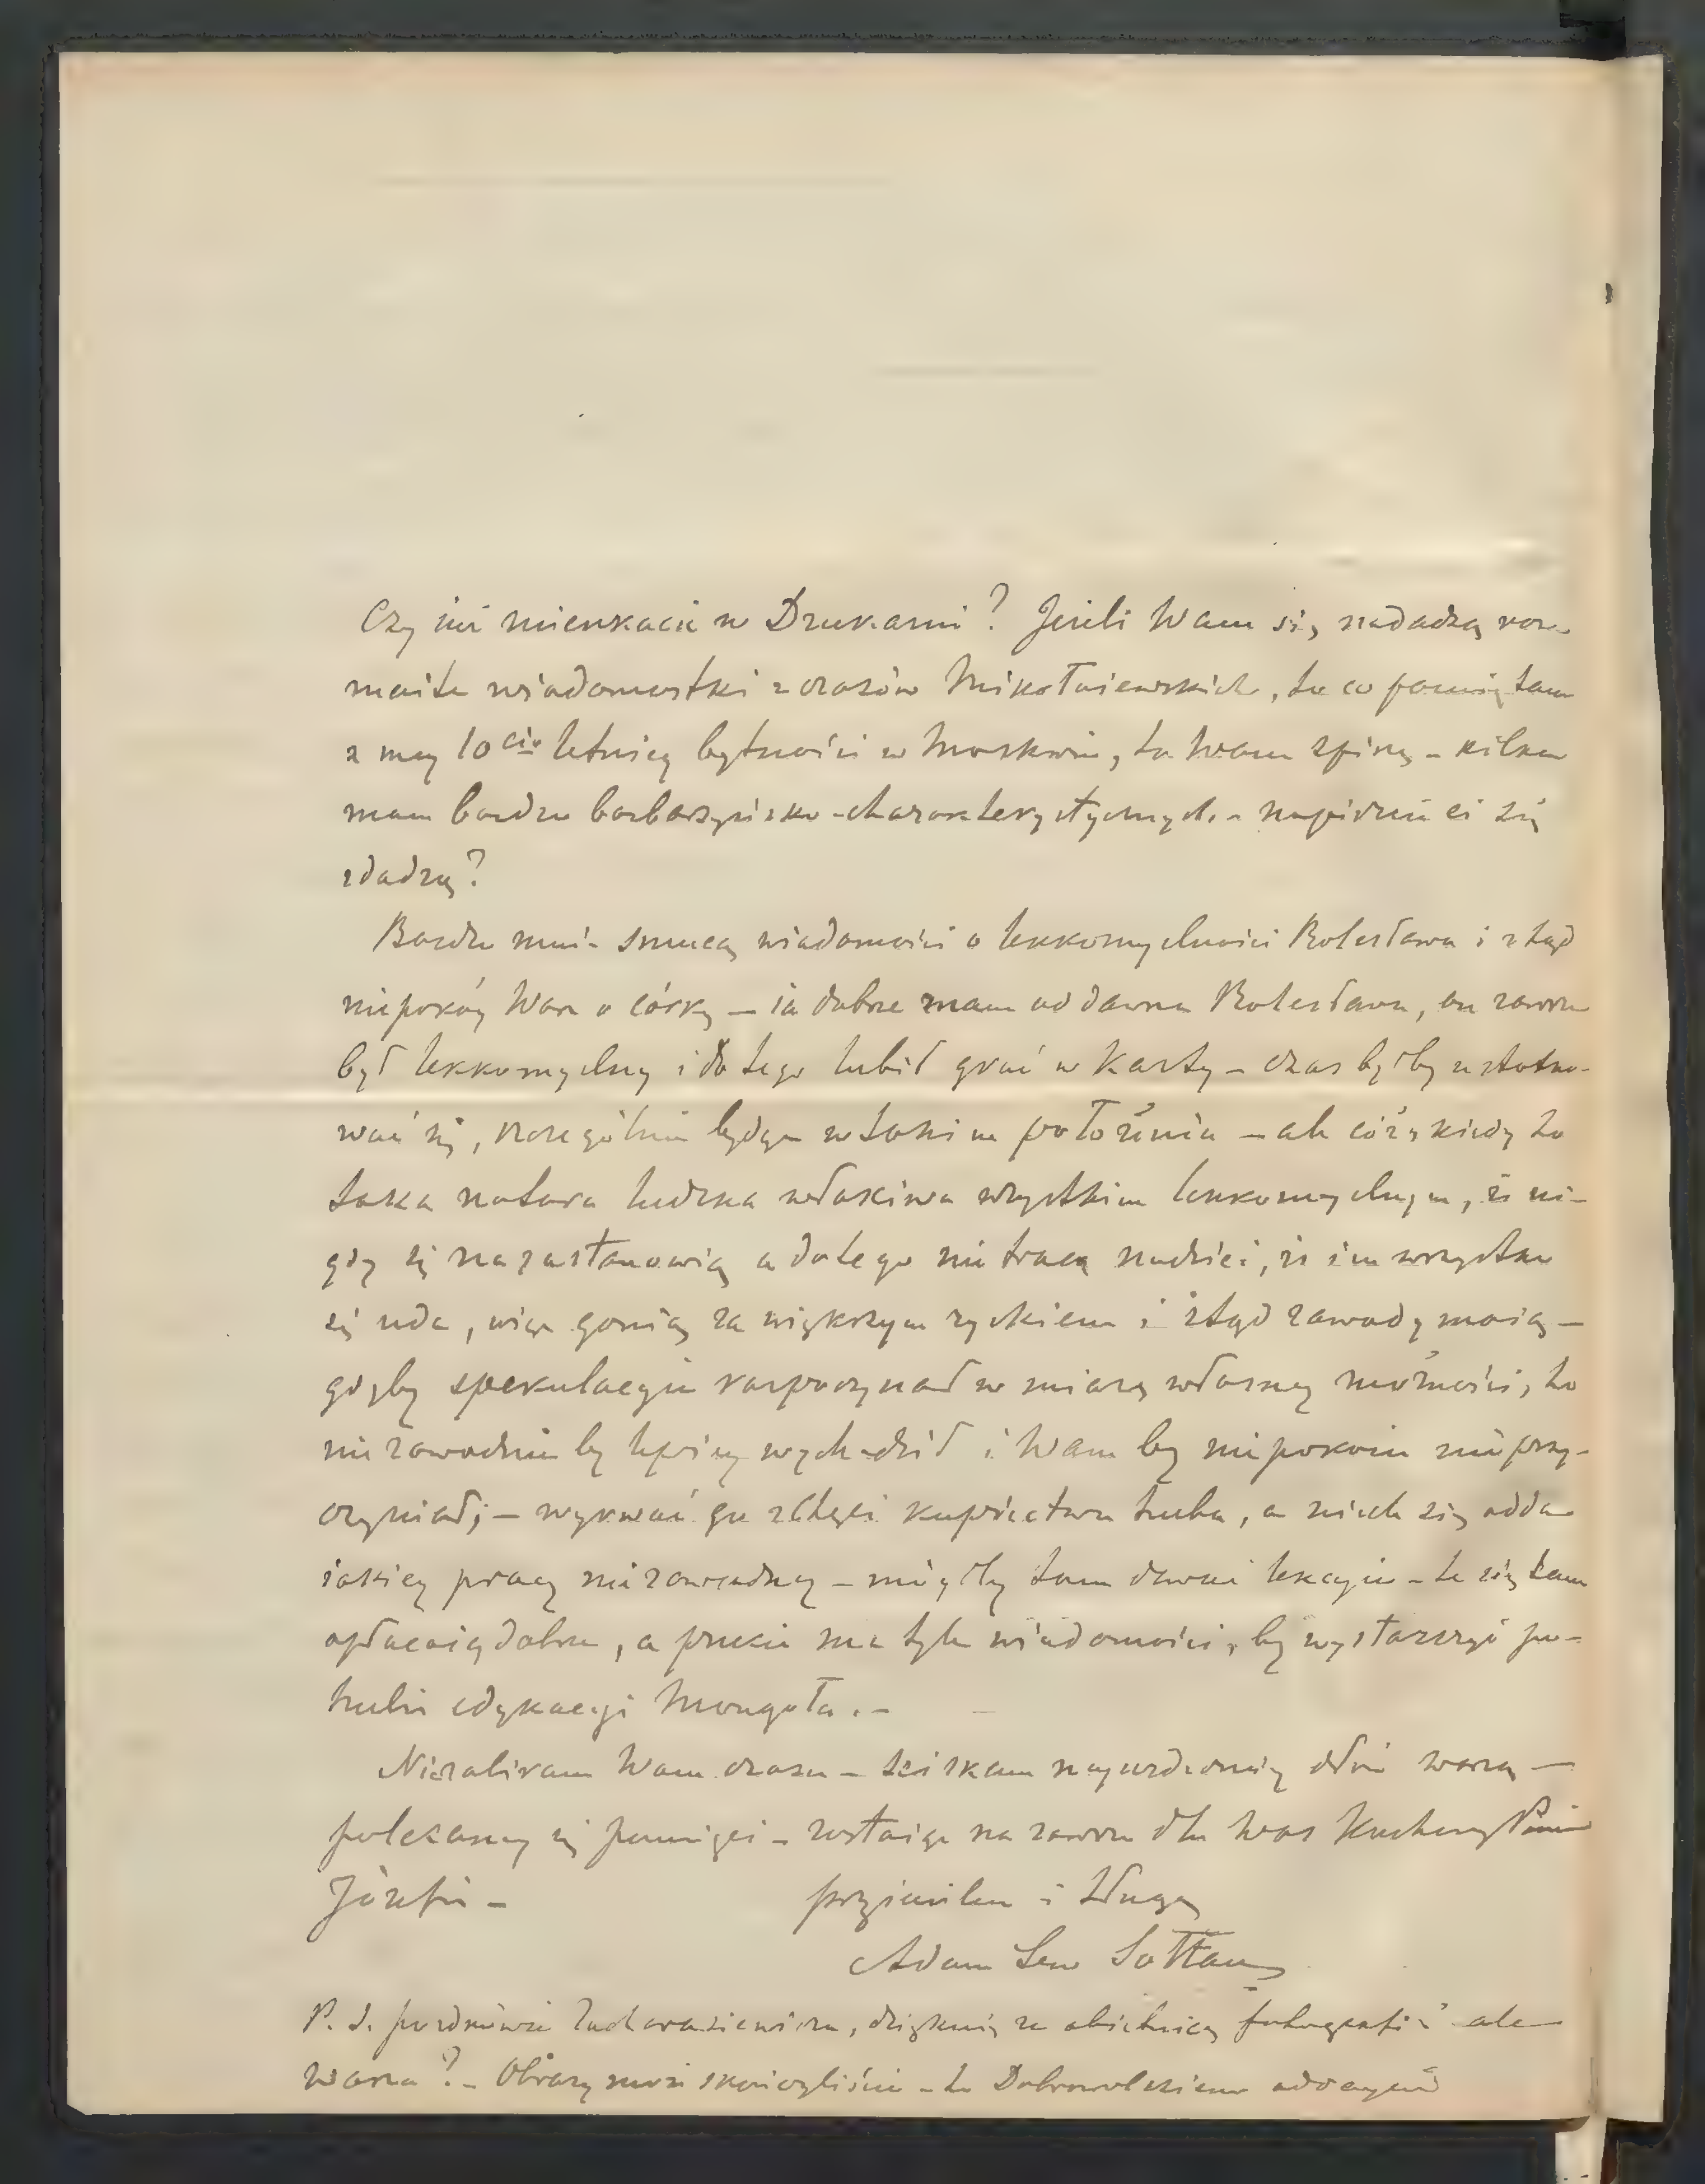 Czy iuż mieszkacie w Drukarni? Jeżeli Wam się nadadzą roz-
maite wiadomostki z czasów Mikołaiewskich, te co pamiętam
z mey 10cio letniey bytności w Moskwie, to Wam spiszę – kilka
mam bardzo barbarzyńsko-charakterystycznych – napiszcie czi się
zdadzą?
Bardzo mnie smucą wiadomości o lekkomyślności Bolesława i ztąd
niepokóy Wasz o córkę – ia dobrze znam od dawna Bolesława, on zawsze
był lekkomyślny i do tego lubił grać w karty – czas byłby ustatko-
wać się, szczególnie będąc w takim położeniu – ale cóż, kiedy to
taka natura ludzka właściwa wszystkim lekkomyślnym, iż ni-
gdy się nie zastanowią a do tego nie tracą nadziei, iż im wszystko
się uda, więc gonią za większym zyskiem i ztąd zawody maią –
gdyby spekulacyie rozpoczynał w miarę własney możności, to
niezawodnie by lepiey wychodził i Wam by niepokoiu nie przy-
czyniał; – wyrwać go z chęci kupiectwa trzeba, a niech się odda
iakiey pracy niezawodney – mógłby tam dawać lekcyie – te się tam
opłacaią dobrze, a przecie ma tyle wiadomości, by wystarczyć po-
trzebie edukacyi Mongoła. –
Niezabieram Wam czasu – ściskam nayserdeczniey dłoń waszą –
polecaiąc się pamięci – zostaię na zawsze dla Was Kochany Panie
Józefie – przyiacielem i sługą
Adam Lew Sołtan
P. S. pozdrówcie Zacharasiewicza, dziękuię za obietnicę fotografii ale
Wasza? – Obrazy może skończyliście – to Dobrowolskiemu